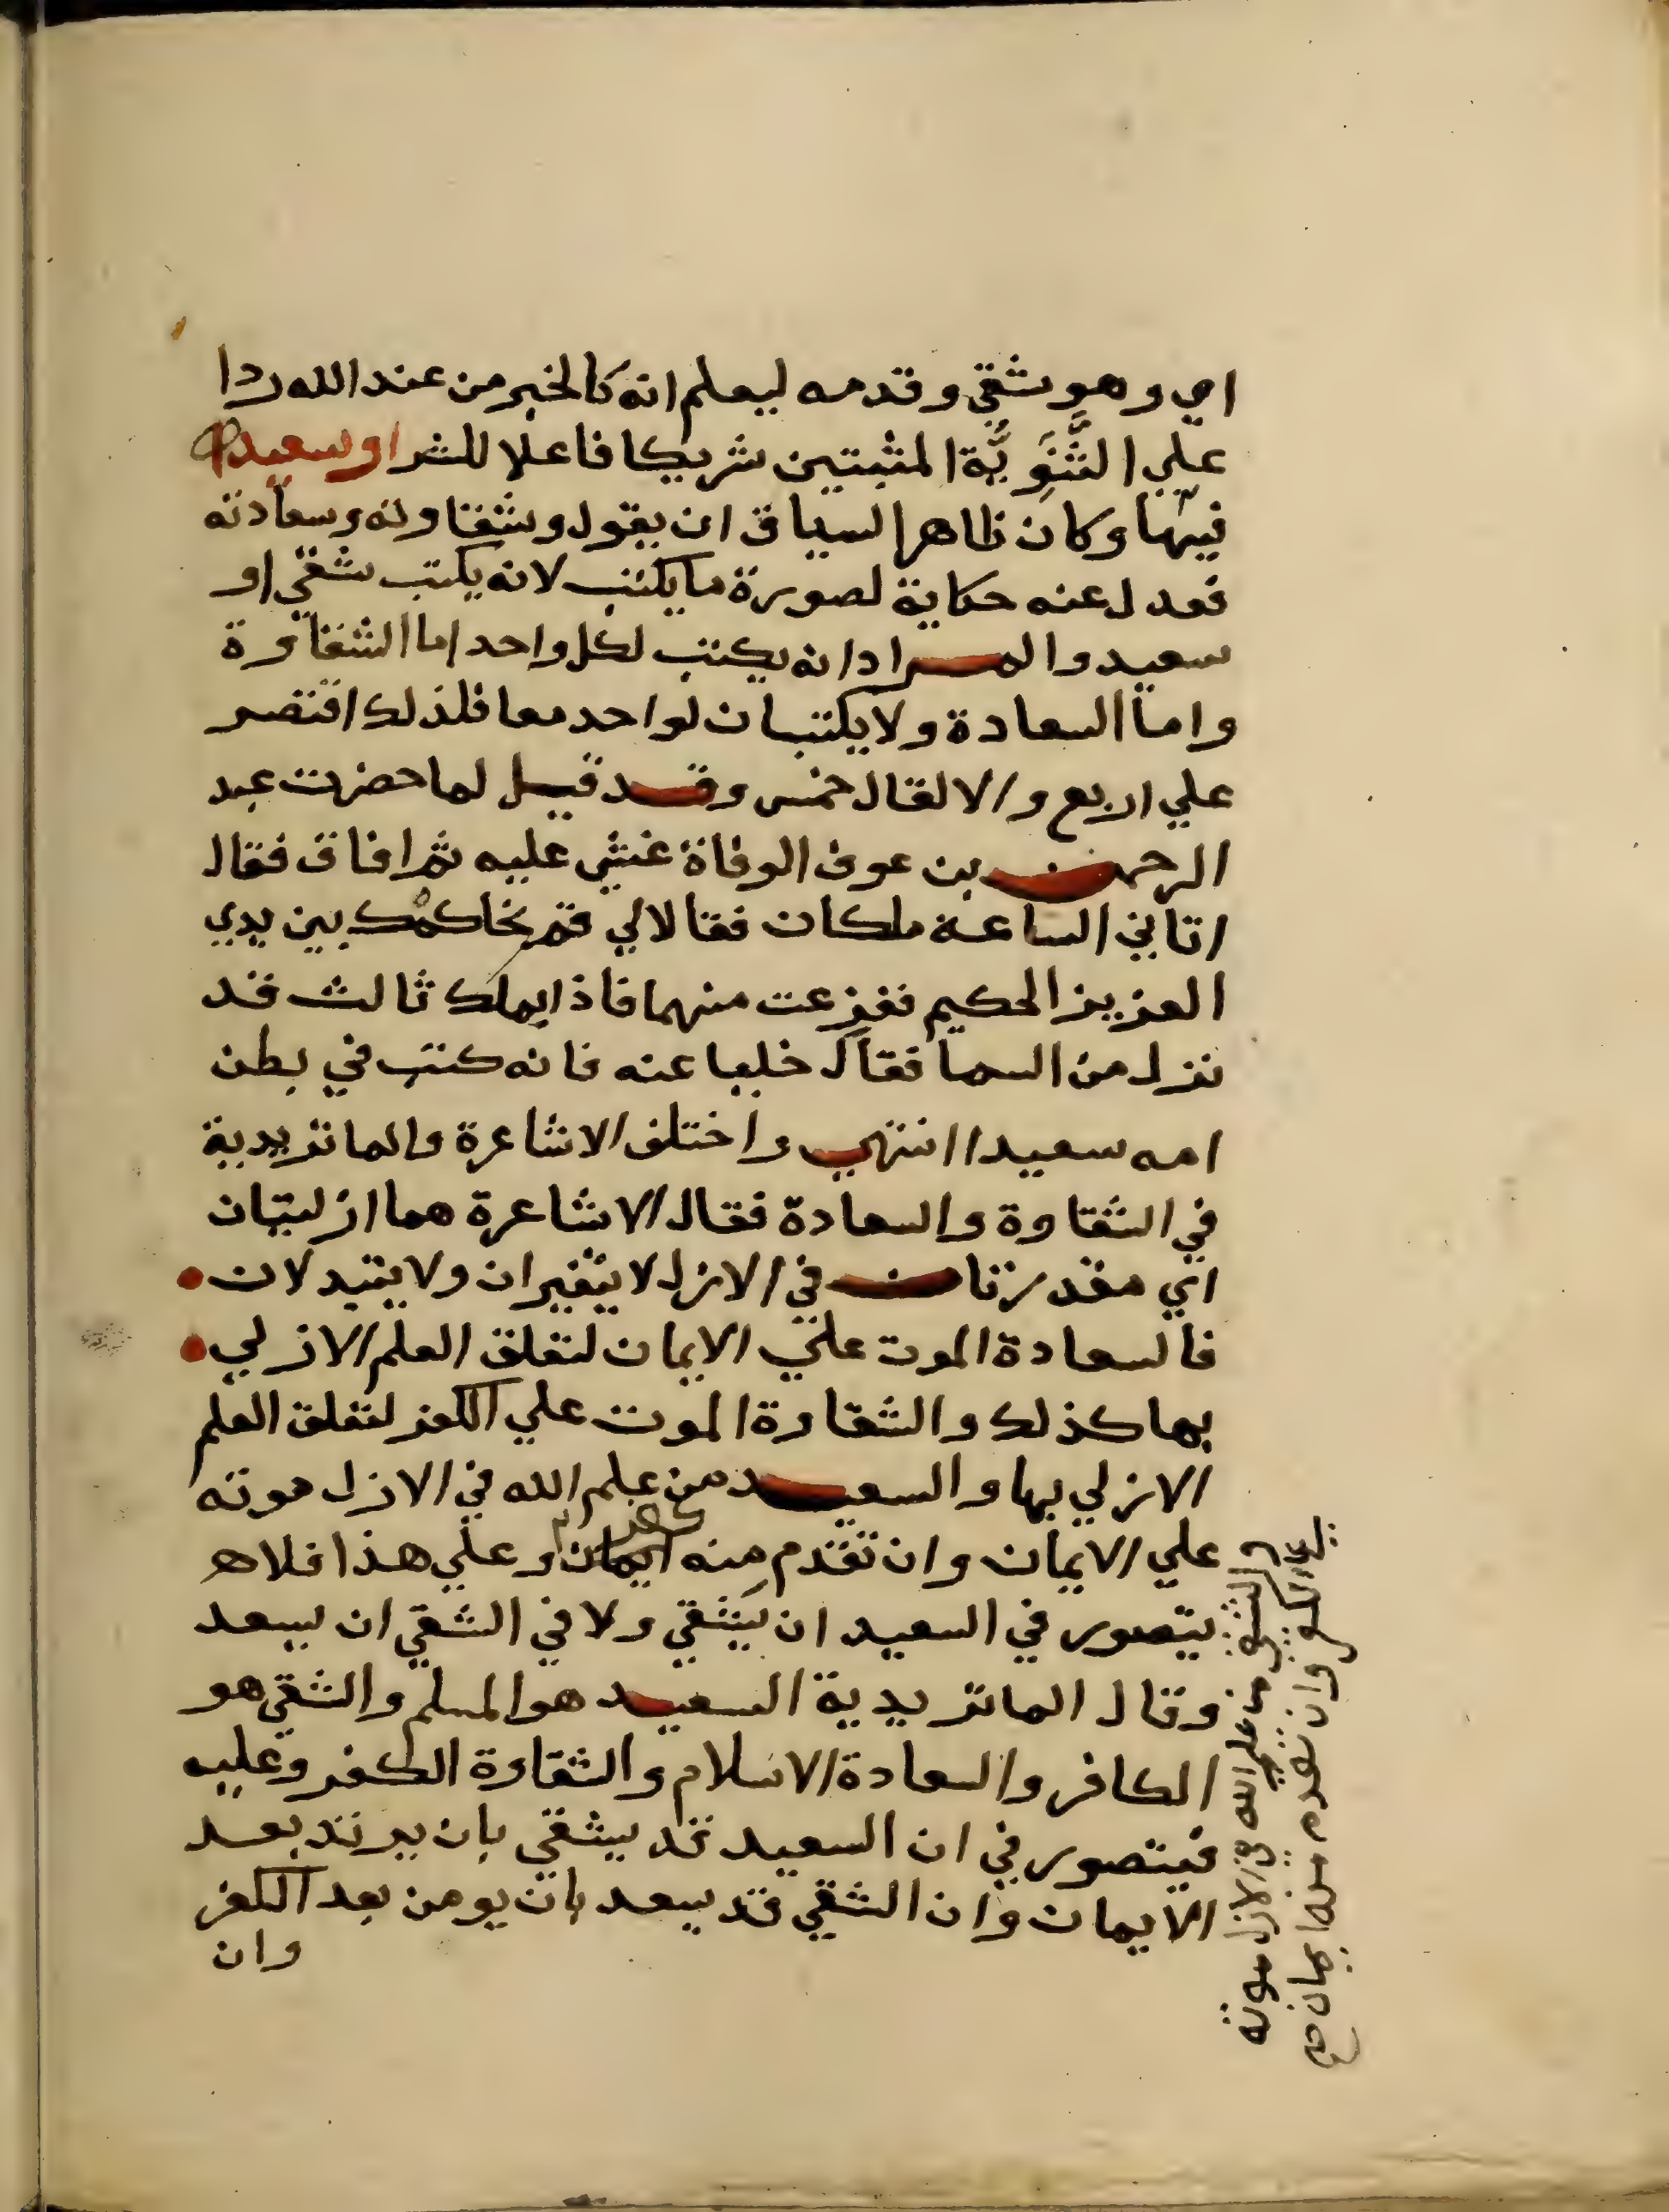 اي وهو شقي وقدمه ليعلم انه كالخير من عند الله ردا
علي الثَّنَوِيَّة المثبتين شريكا فاعلا للشر او سعيد
فيهما وكان ظاهر السياق ان يقول وشقاوته وسعادته
فعدل عنه حكاية لصورة ما يكتب لانه يكتب شقي او
سعيد والمراد انه يكتب لكل واحد اما الشقاوة
واما السعادة ولا يكتبان لواحد معا فلذلك اقتصر
علي اربع والا لقال خمس وقد قيل لما حضرت عبد
الرحمن بن عوف الوفاة غشي عليه ثم افاق فقال
اتاني الساعة ملكان فقالا لي قم نحاكمك بين يدي
العزيز الحكيم ففزعت منهما فاذا بملك ثالث قد
نزل من السما فقال خليا عنه فانه كتب في بطن
امه سعيدا انتهي واختلف الاشاعرة والماتريدية
في الشقاوة والسعادة فقال الاشاعرة هما ازليتان
اي مقدرتان في الازل لا يتغيران ولا يتبدلان
فالسعادة الموت علي الايمان لتعلق العلم الازلي
بها كذلك والشقاوة الموت علي الكفر لتعلق العلم
الازلي بها والسعيد من علم الله في الازل موته
علي الايمان وان تقدم منه ايمان وعلي هذا فلا
كفر
يتصور في السعيد ان يَشقي ولا في الشقي ان يسعد
وقال الماتريدية السعيد هو المسلم والشقي هو
الكافر والسعادة الاسلام والشقاوة الكفر وعليه
فيتصور في ان السعيد قد يشقي بان يرتد بعد
الايمان وان الشقي قد يسعد بان يومن بعد الكفر
وان
والشقي من علم الله في الازل موته
علي الكفر وان تقدم منه ايمان صح